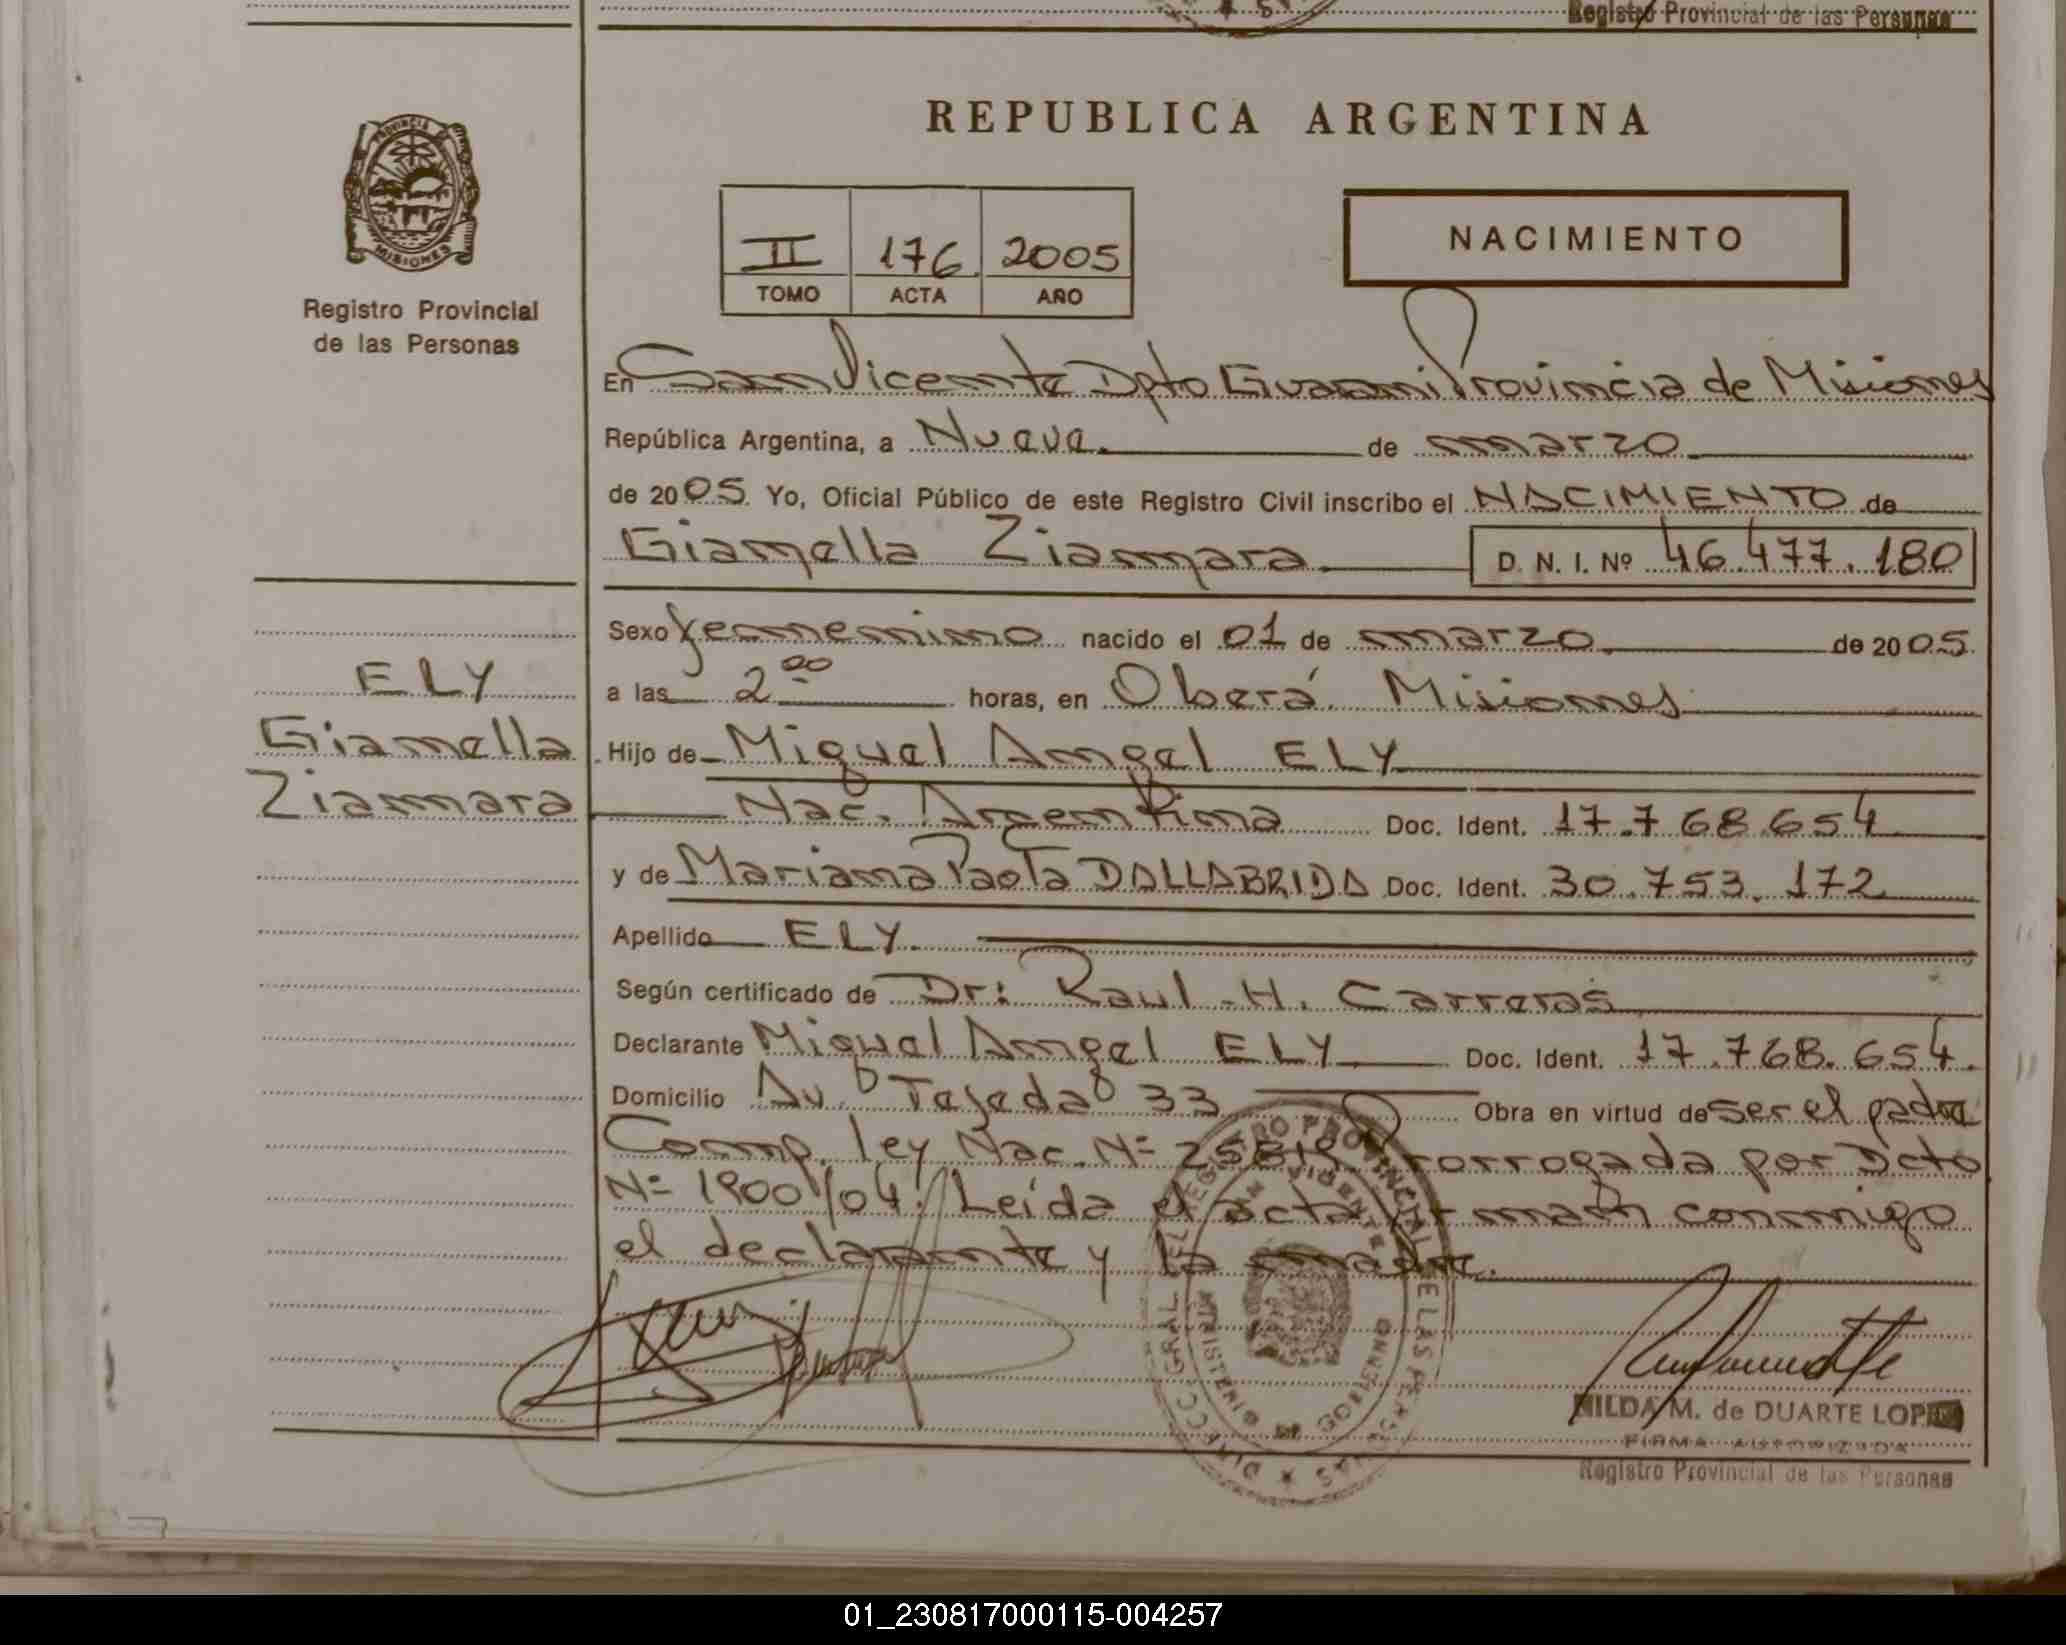 Registro Provincial de las Personas
PROVINCIA
MISIONES
Registro Provincial
de las Personas
REPUBLICA ARGENTINA
II 176 2005
TOMO ACTA AÑO
NACIMIENTO
En San Vicente Dpto Guarani Provincia de Misiones
República Argentina, a Nueve de marzo
de 2005 Yo, Oficial Público de este Registro Civil inscribo el NACIMIENTO de
Gianella Ziamara D. N. I. Nº 46.477.180
Sexo femenino nacido el 01 de marzo de 2005
a las 2 00 horas, en Oberá Misiones
Hijo de Miguel Angel ELY
Nac. Argentina Doc. Ident. 17.768.654
y de Mariana Paola DALLABRIDA Doc. Ident. 30.753.172
Apellido ELY
Según certificado de Dr: Raul H. Carreras
Declarante Miguel Angel ELY Doc. Ident. 17.768.654.
Domicilio Av. Tejeda 33 Obra en virtud de ser el padre
Comp. ley Nac. Nº 25819 Prorrogada por Dcto
Nº 1900/04. Leída el acta firman conmigo
el declarante y la madre.
ELY
Gianella
Ziamara
HILDA M. de DUARTE LOPEZ
FIRMA AUTORIZADA
Registro Provincial de las Personas
01_230817000115-004257